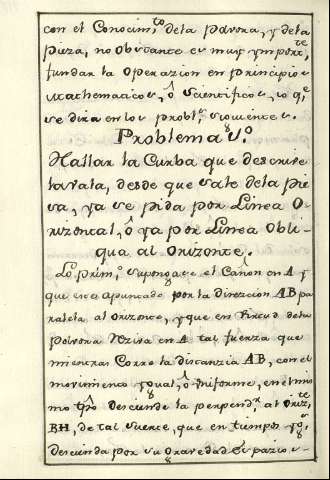 con el Conocim.to dela Polvora, y dela
Pieza, no obstante es muy ymport.te
fundar la Operazion en Principios
Mathematicos, ô Scientificos, lo q.e
se dira en los probl.s siguientes.
Problema
Hallar la Curba que descrive
la vala, desde que sale dela pie
sa, ya se pida por Linea O-
rizontal, ô ya por Linea Obli-
qua al Orizonte.
Lo prim.o supongase el Cañon en A y
que esta apuntado por la direccion AB pa
ralela al orizonte, y que en fuerza dela
Polvora en A tal fuerza que
mientras Corre la distanzia AB, con el
movimiento ygual, ô uniforme, en el mis
mo tpo desciende la perpend.r al orizte
BH, de tal suerte, que en tiempos
descienda por su Gravedad Espazios